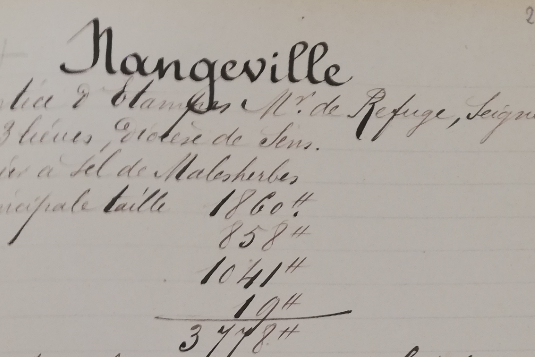 2
Nangeville
d'Étampes Mr. de Refuge, Seigne
3 lieues, Diocèse de Sens.
à sel de Malesherbes
ncipale taille 1860 ₶
858 ₶
1041 ₶
19 ₶
3778 ₶